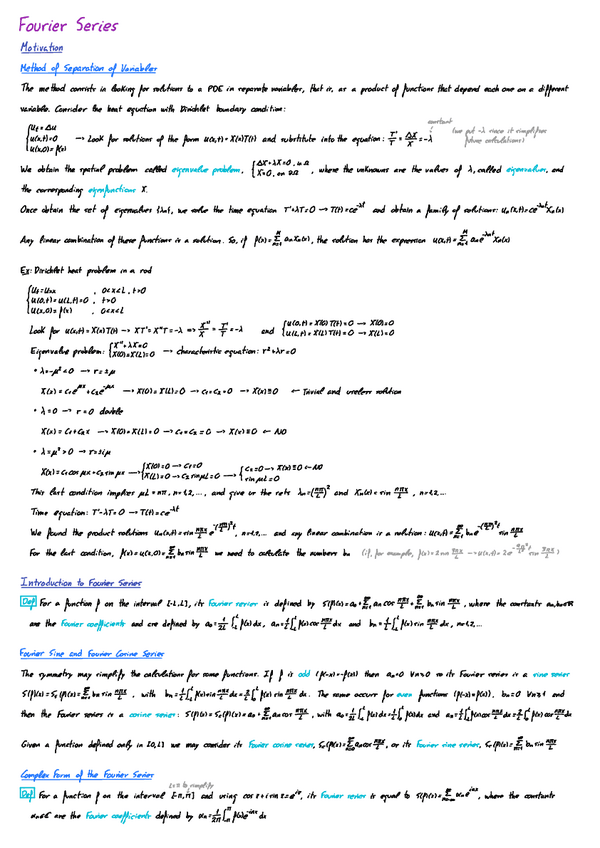 Fourier Series
Motivation
Method of Separation of Variables
The method consists in looking for solutions to a PDE in separate variables, that is, as a product of functions that depend each one on a different
variable. Consider the heat equation with Dirichlet boundary condition:
{ u_t = Δu
u(x,t)=0 → Look for solutions of the form u(x,t) = X(x)T(t) and substitute into the equation: T'/T = ΔX/X = -λ constant (we put -λ since it simplifies future calculations)
u(x,0) = f(x)
We obtain the spatial problem called eigenvalue problem, { ΔX+λX=0, in Ω X=0, on ∂Ω , where the unknowns are the values of λ, called eigenvalues, and
the corresponding eigenfunctions X.
Once obtain the set of eigenvalues {λn}, we solve the time equation T'+λT=0 → T(t)=ce^-λt and obtain a family of solutions: un(x,t)=ce^-λnt Xn(x)
Any linear combination of these functions is a solution. So, if f(x)=Σ anXn(x), the solution has the expression u(x,t)=Σ an e^-λnt Xn(x)
Ex: Dirichlet heat problem in a rod
{ ut=uxx , 0<x<L, t>0
u(0,t)=u(L,t)=0 , t>0
u(x,0)=f(x) , 0<x<L
Look for u(x,t)=X(x)T(t) → XT'=X''T=-λ ⇒ X''/X = T'/T = -λ and { u(0,t)=X(0)T(t)=0 → X(0)=0 u(L,t)=X(L)T(t)=0 → X(L)=0
Eigenvalue problem: { X''+λX=0 X(0)=X(L)=0 → characteristic equation: r²+λr=0
• λ=-μ²<0 → r=±μ
X(x)=c₁e^μx+c₂e^-μx → X(0)=X(L)=0 → c₁=c₂=0 → X(x)≡0 ← Trivial and useless solution
• λ=0 → r=0 double
X(x)=c₁+c₂x → X(0)=X(L)=0 → c₁=c₂=0 → X(x)≡0 ← NO
• λ=μ²>0 → r=±iμ
X(x)=c₁cos μx+c₂sin μx → { X(0)=0 → c₁=0 X(L)=0 → c₂ sin μL=0 → { c₂=0 → X(x)≡0 ← NO sin μL=0
This last condition implies μL=nπ, n=1,2,..., and give us the sets λn=(nπ/L)² and Xn(x)=sin nπx/L , n=1,2,...
Time equation: T'-λT=0 → T(t)=ce^-λt
We found the product solutions un(x,t)=sin nπx/L e^-(nπ/L)²t, n=1,2,... and any linear combination is a solution: u(x,t)=Σ bn e^-(nπ/L)²t sin nπx/L
For the last condition, f(x)=u(x,0)=Σ bn sin nπx/L we need to calculate the numbers bn
Introduction to Fourier Series
Def For a function f on the interval [-L,L], its Fourier series is defined by S(f)(x)=a₀+Σ an cos nπx/L+Σ bn sin nπx/L, where the constants an,bn∈ℝ
are the Fourier coefficients and are defined by a₀=1/2L ∫f(x)dx, an=1/L ∫f(x)cos nπx/L dx and bn=1/L ∫f(x)sin nπx/L dx, n=1,2,...
Fourier Sine and Fourier Cosine Series
The symmetry may simplify the calculations for some functions. If f is odd (f(-x)=-f(x)) then an=0 ∀n≥0 so its Fourier series is a sine series
S(f)(x)=Ss(f)(x)=Σ bn sin nπx/L , with bn=1/L ∫f(x)sin nπx/L dx=2/L ∫f(x) sin nπx/L dx. The same occurs for even functions (f(-x)=f(x)), bn=0 ∀n≥1 and
then the Fourier series is a cosine series: S(f)(x)=Sc(f)(x)=a₀+Σ an cos nπx/L, with a₀=1/2L ∫f(x)dx=1/L ∫f(x)dx and an=1/L ∫f(x)cos nπx/L dx=2/L ∫f(x)cos nπx/L dx
Given a function defined only in [0,L] we may consider its Fourier cosine series, Sc(f)(x)=Σ an cos nπx/L, or its Fourier sine series, Ss(f)(x)=Σ bn sin nπx/L
Complex Form of the Fourier Series
L=π to simplify
Def For a function f on the interval [-π,π] and using cos z+i sin z=e^iz, its Fourier series is equal to S(f)(x)=Σ αn e^inx, where the constants
αn∈ℂ are the Fourier coefficients defined by αn=1/2π ∫f(x)e^-inx dx